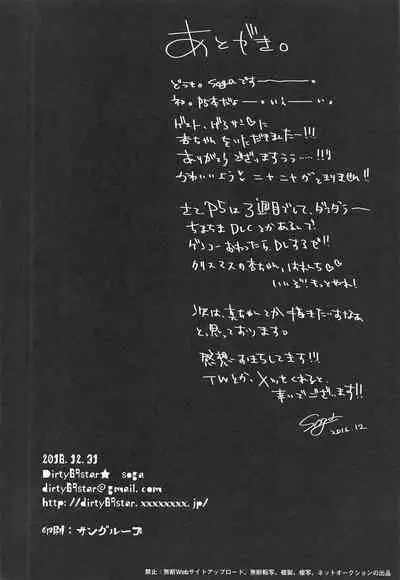 あとがき。
どうも。Sogaです———。
わ。P5本だよ—。いえ—い。
ゲスト、げろサミ♡に
杏ちゃんをいただきました〜!!!
ありがとうございますうう……!!!
かわいいよう♥ニヤニヤがとまりません!!
さて P5は3週目でして、ダラダラ—
ちまちまDLCとかあるんで
ゲンコーおわったらDLするぜ!!
クリスマスの杏ちゃん、はれんち♡♡
いいぞ!もっとやれ!
次は、真ちゃんとか描きたいすなあ
と思っております。
感想おまちしてます!!!
TWとか、メッてくれると、
幸いでございます!!
Soga
2016.12
2016.12.31
Dirty69star★ soga
dirty69star@gmail.com
http://dirty69star.xxxxxxxx.jp/
印刷：サングループ
禁止：無断Webサイトアップロード、無断転写、複製、複写、ネットオークションの出品